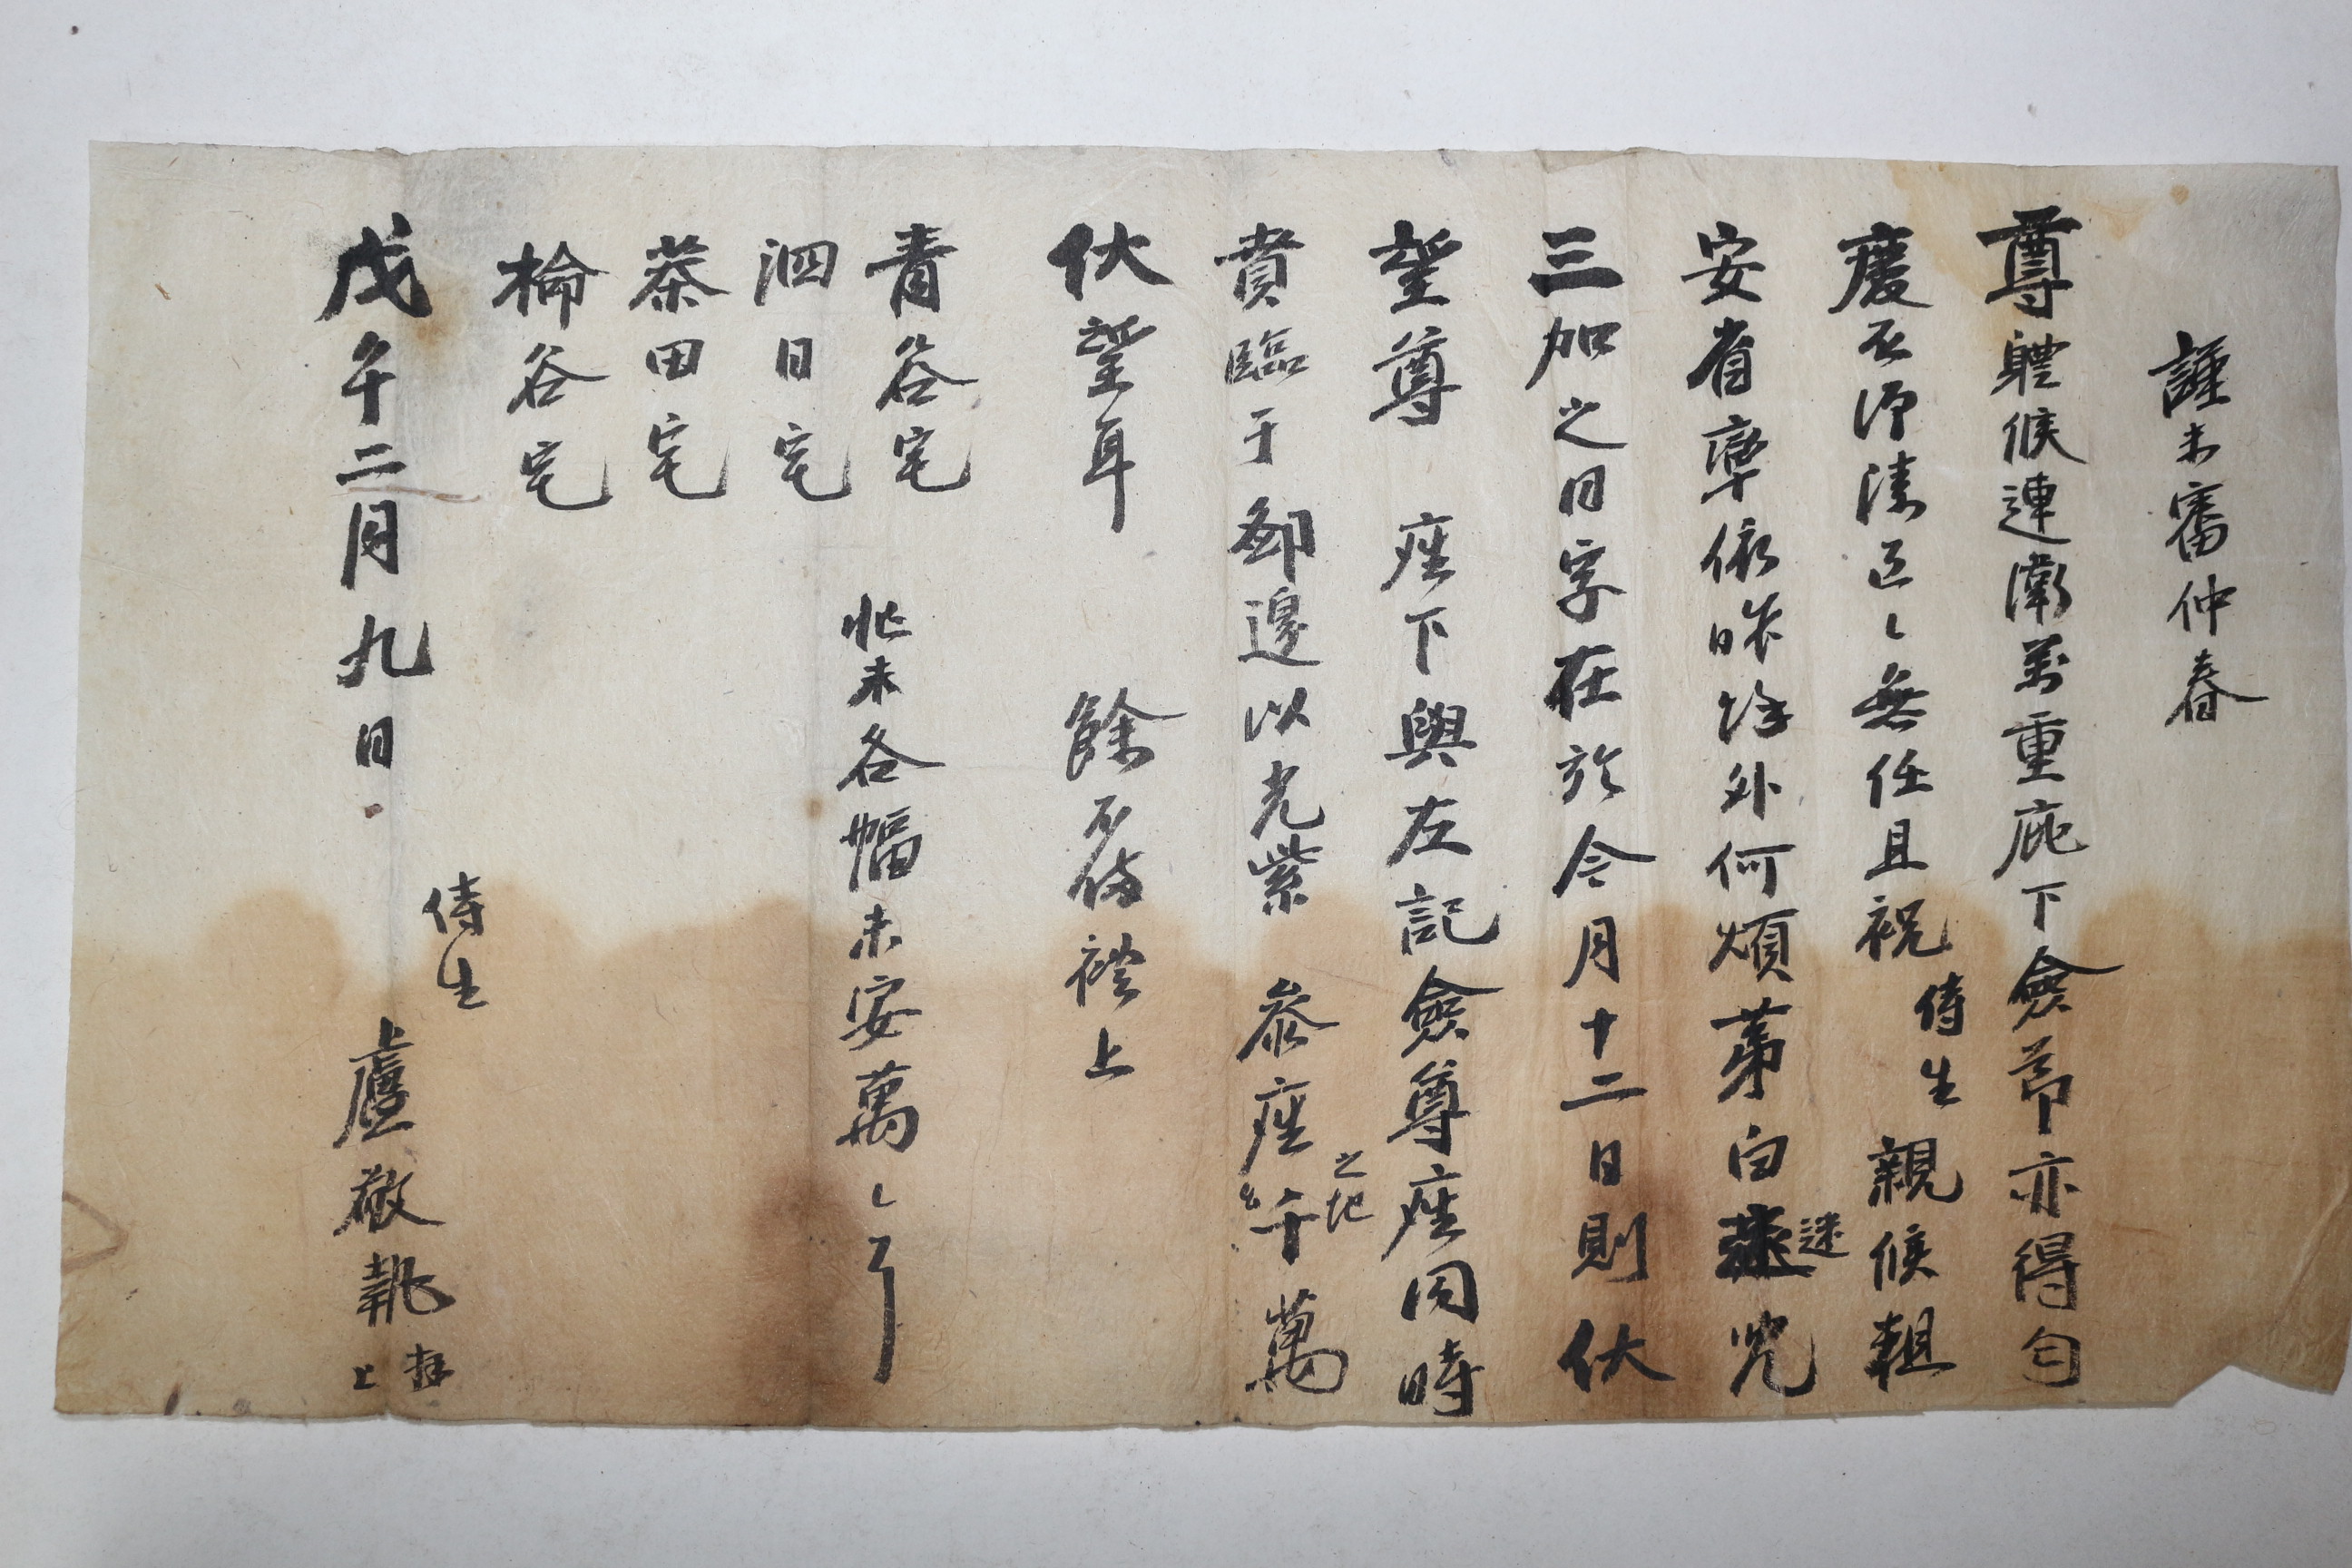 謹未審仲春
尊體候連衛萬重庇下僉节亦得匀
慶否溸區〻無任且祝侍生親候粗
安省率依昨外何煩苐白迷児
三加之日字在於今月十二日則伏
望尊座下與左記僉尊座同時
賁臨于鄙邊以光紫叅座之地千萬
伏望耳 餘不備禮上
青谷宅
泗日宅
茶田宅
棆谷宅
悲未各幅未安萬〻耳
戊午二月九日
侍生盧敬執拜上